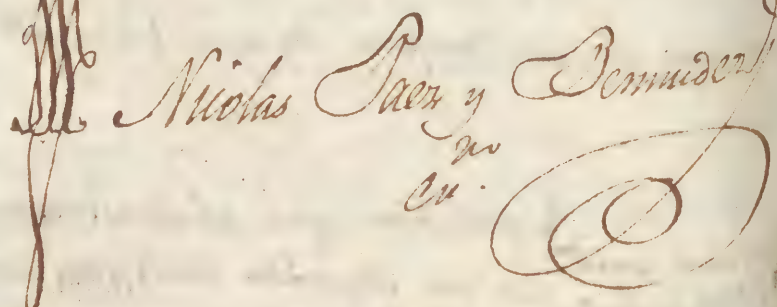 Nicolas Paez y Bermudez